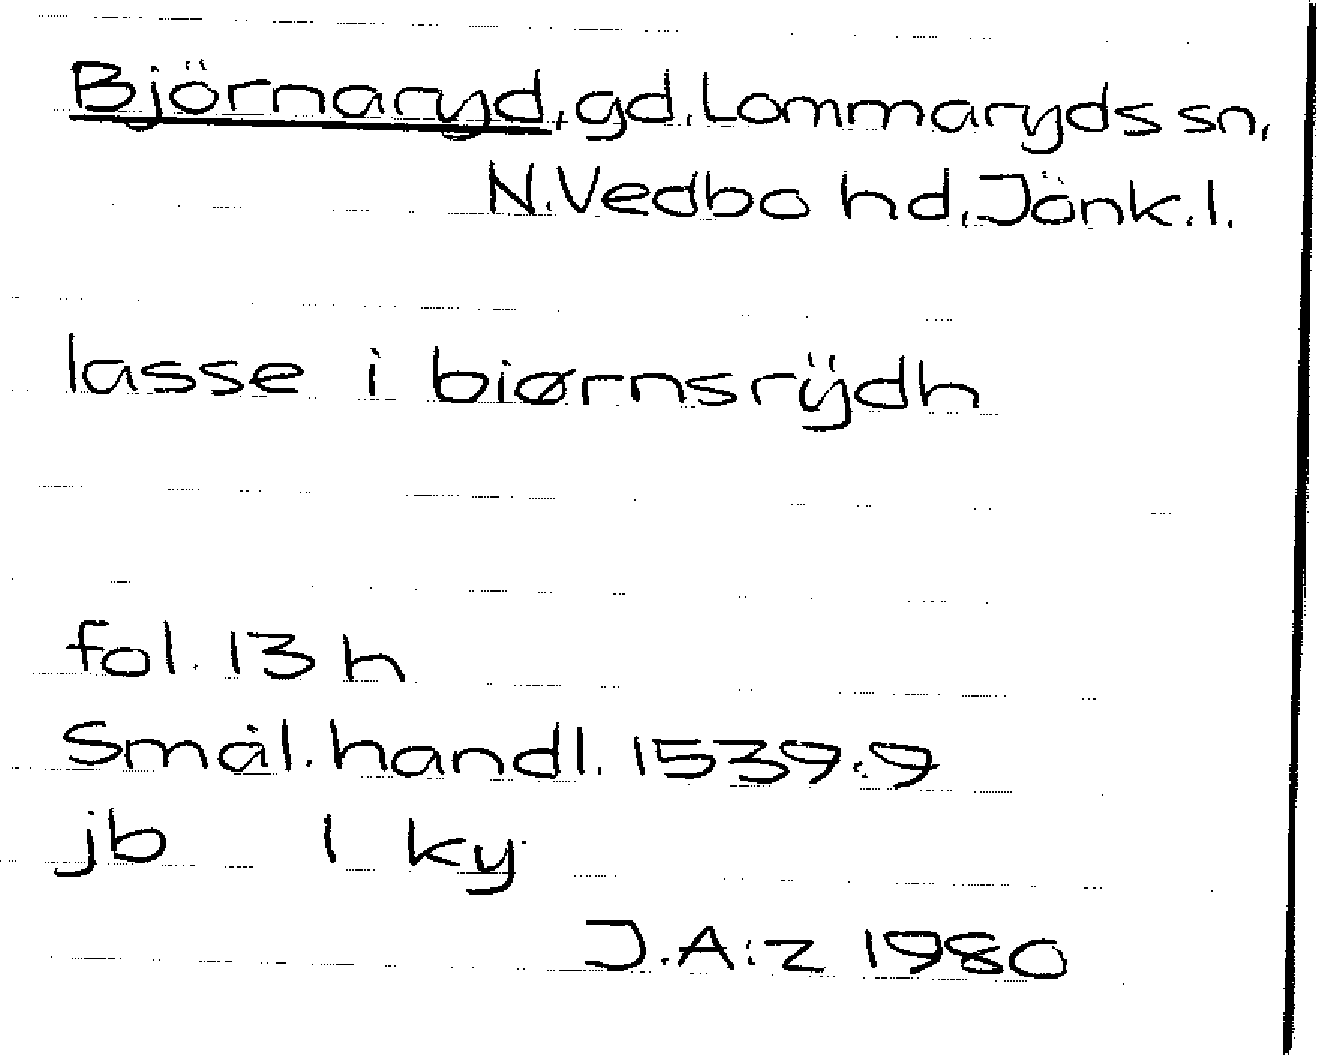 Björnaryd, gd, Lommaryds sn,
N. Vedbo hd, Jönk. l.
lasse i biørnsrÿdh
fol. 13 h
Smål. handl. 1539:9
jb 1 ky
J.A:z 1980